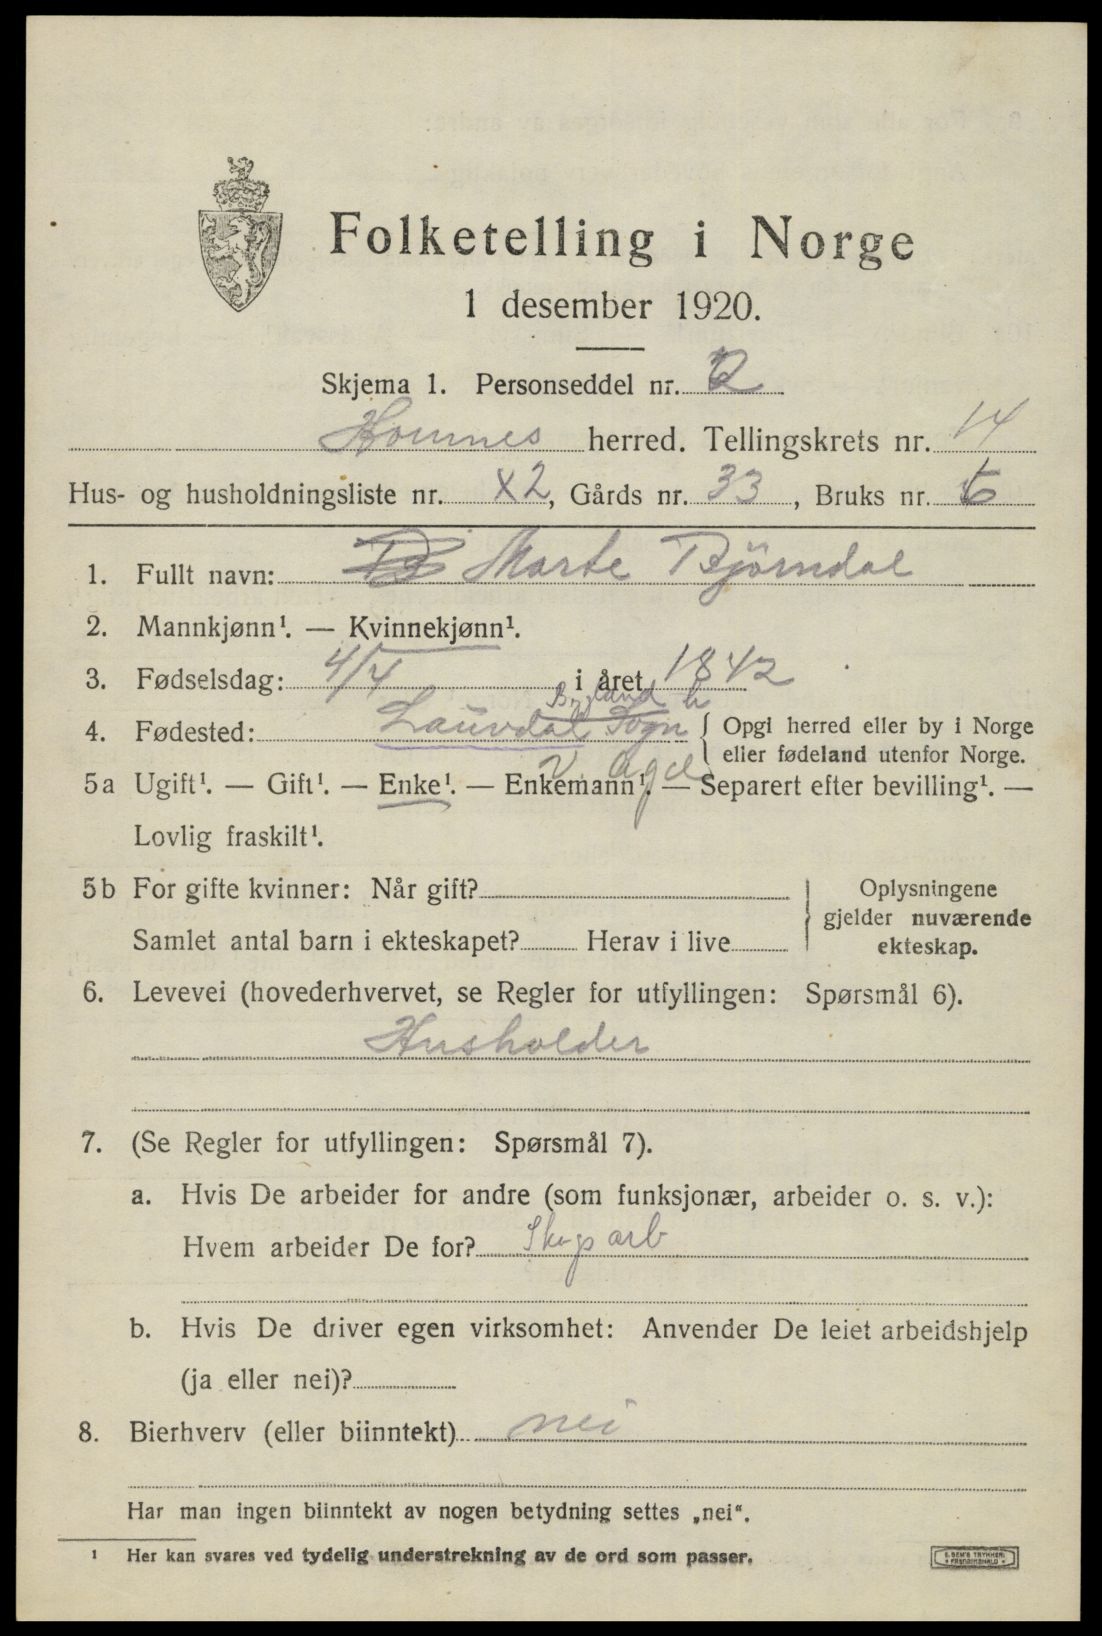 Folketelling i Norge
1 desember 1920.
Skjema 1. Personseddel nr. 2
Hornnes herred. Tellingskrets nr. 14
Hus- og husholdningsliste nr. x2, Gårds nr. 33, Bruks nr.
1. Fullt navn: Marte Björndal
2. Mannkjønn¹. — Kvinnekjønn¹.
3. Fødselsdag: 4/4 i året 1842
Bygland h
4. Fødested: Lauvdal Sogn { Opgi herred eller by i Norge
eller fødeland utenfor Norge.
V. Agd
5a Ugift¹. — Gift¹. — Enke¹. — Enkemann¹. — Separert efter bevilling¹. —
Lovlig fraskilt¹.
5b For gifte kvinner: Når gift?
Samlet antal barn i ekteskapet? Herav i live
Oplysningene
gjelder nuværende
ekteskap.
6. Levevei (hovederhvervet, se Regler for utfyllingen: Spørsmål 6).
Husholder
7. (Se Regler for utfyllingen: Spørsmål 7).
a. Hvis De arbeider for andre (som funksjonær, arbeider o. s. v.):
Hvem arbeider De for? Skogsarb
b. Hvis De driver egen virksomhet: Anvender De leiet arbeidshjelp
(ja eller nei)?
8. Bierhverv (eller biinntekt) nei
Har man ingen biinntekt av nogen betydning settes „nei“.
¹ Her kan svares ved tydelig understrekning av de ord som passer.